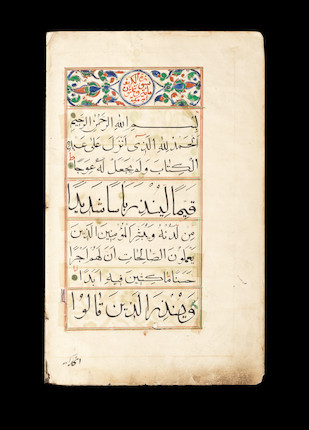 بسم الله الرحمن الرحيم
الحمد لله الذي انزل على عبده
الكتاب ولم يجعل له عوجا
قيما لينذر باسا شديدا
من لدنه ويبشر المؤمنين الذين
يعملون الصالحات ان لهم اجرا
حسنا ماكثين فيه ابدا
وينذر الذين قالوا